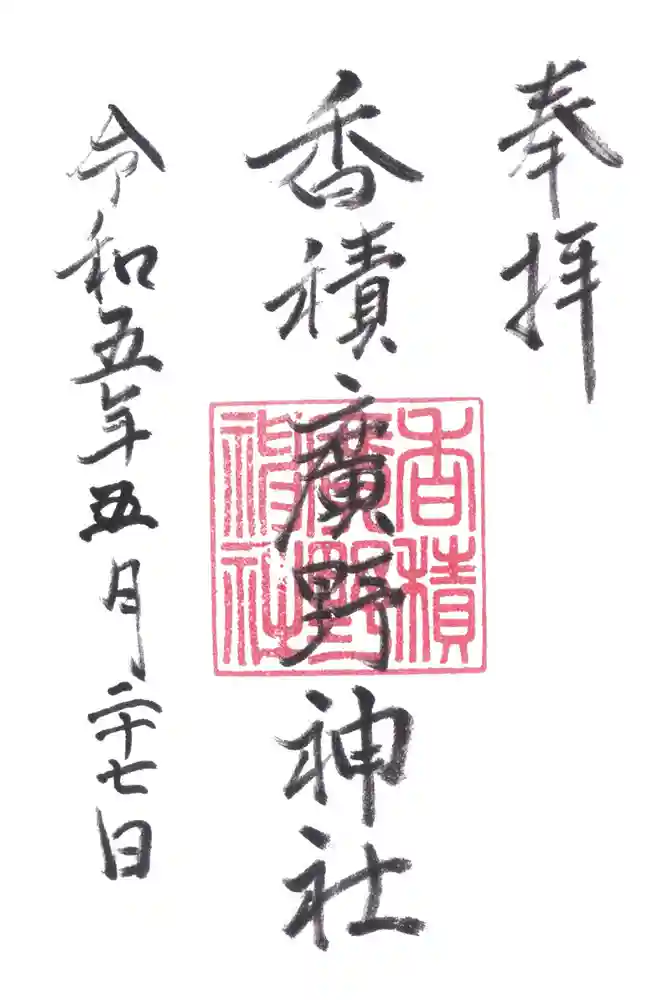 奉拝
香積廣野神社
香積
廣野
神社
令和五年五月二十七日